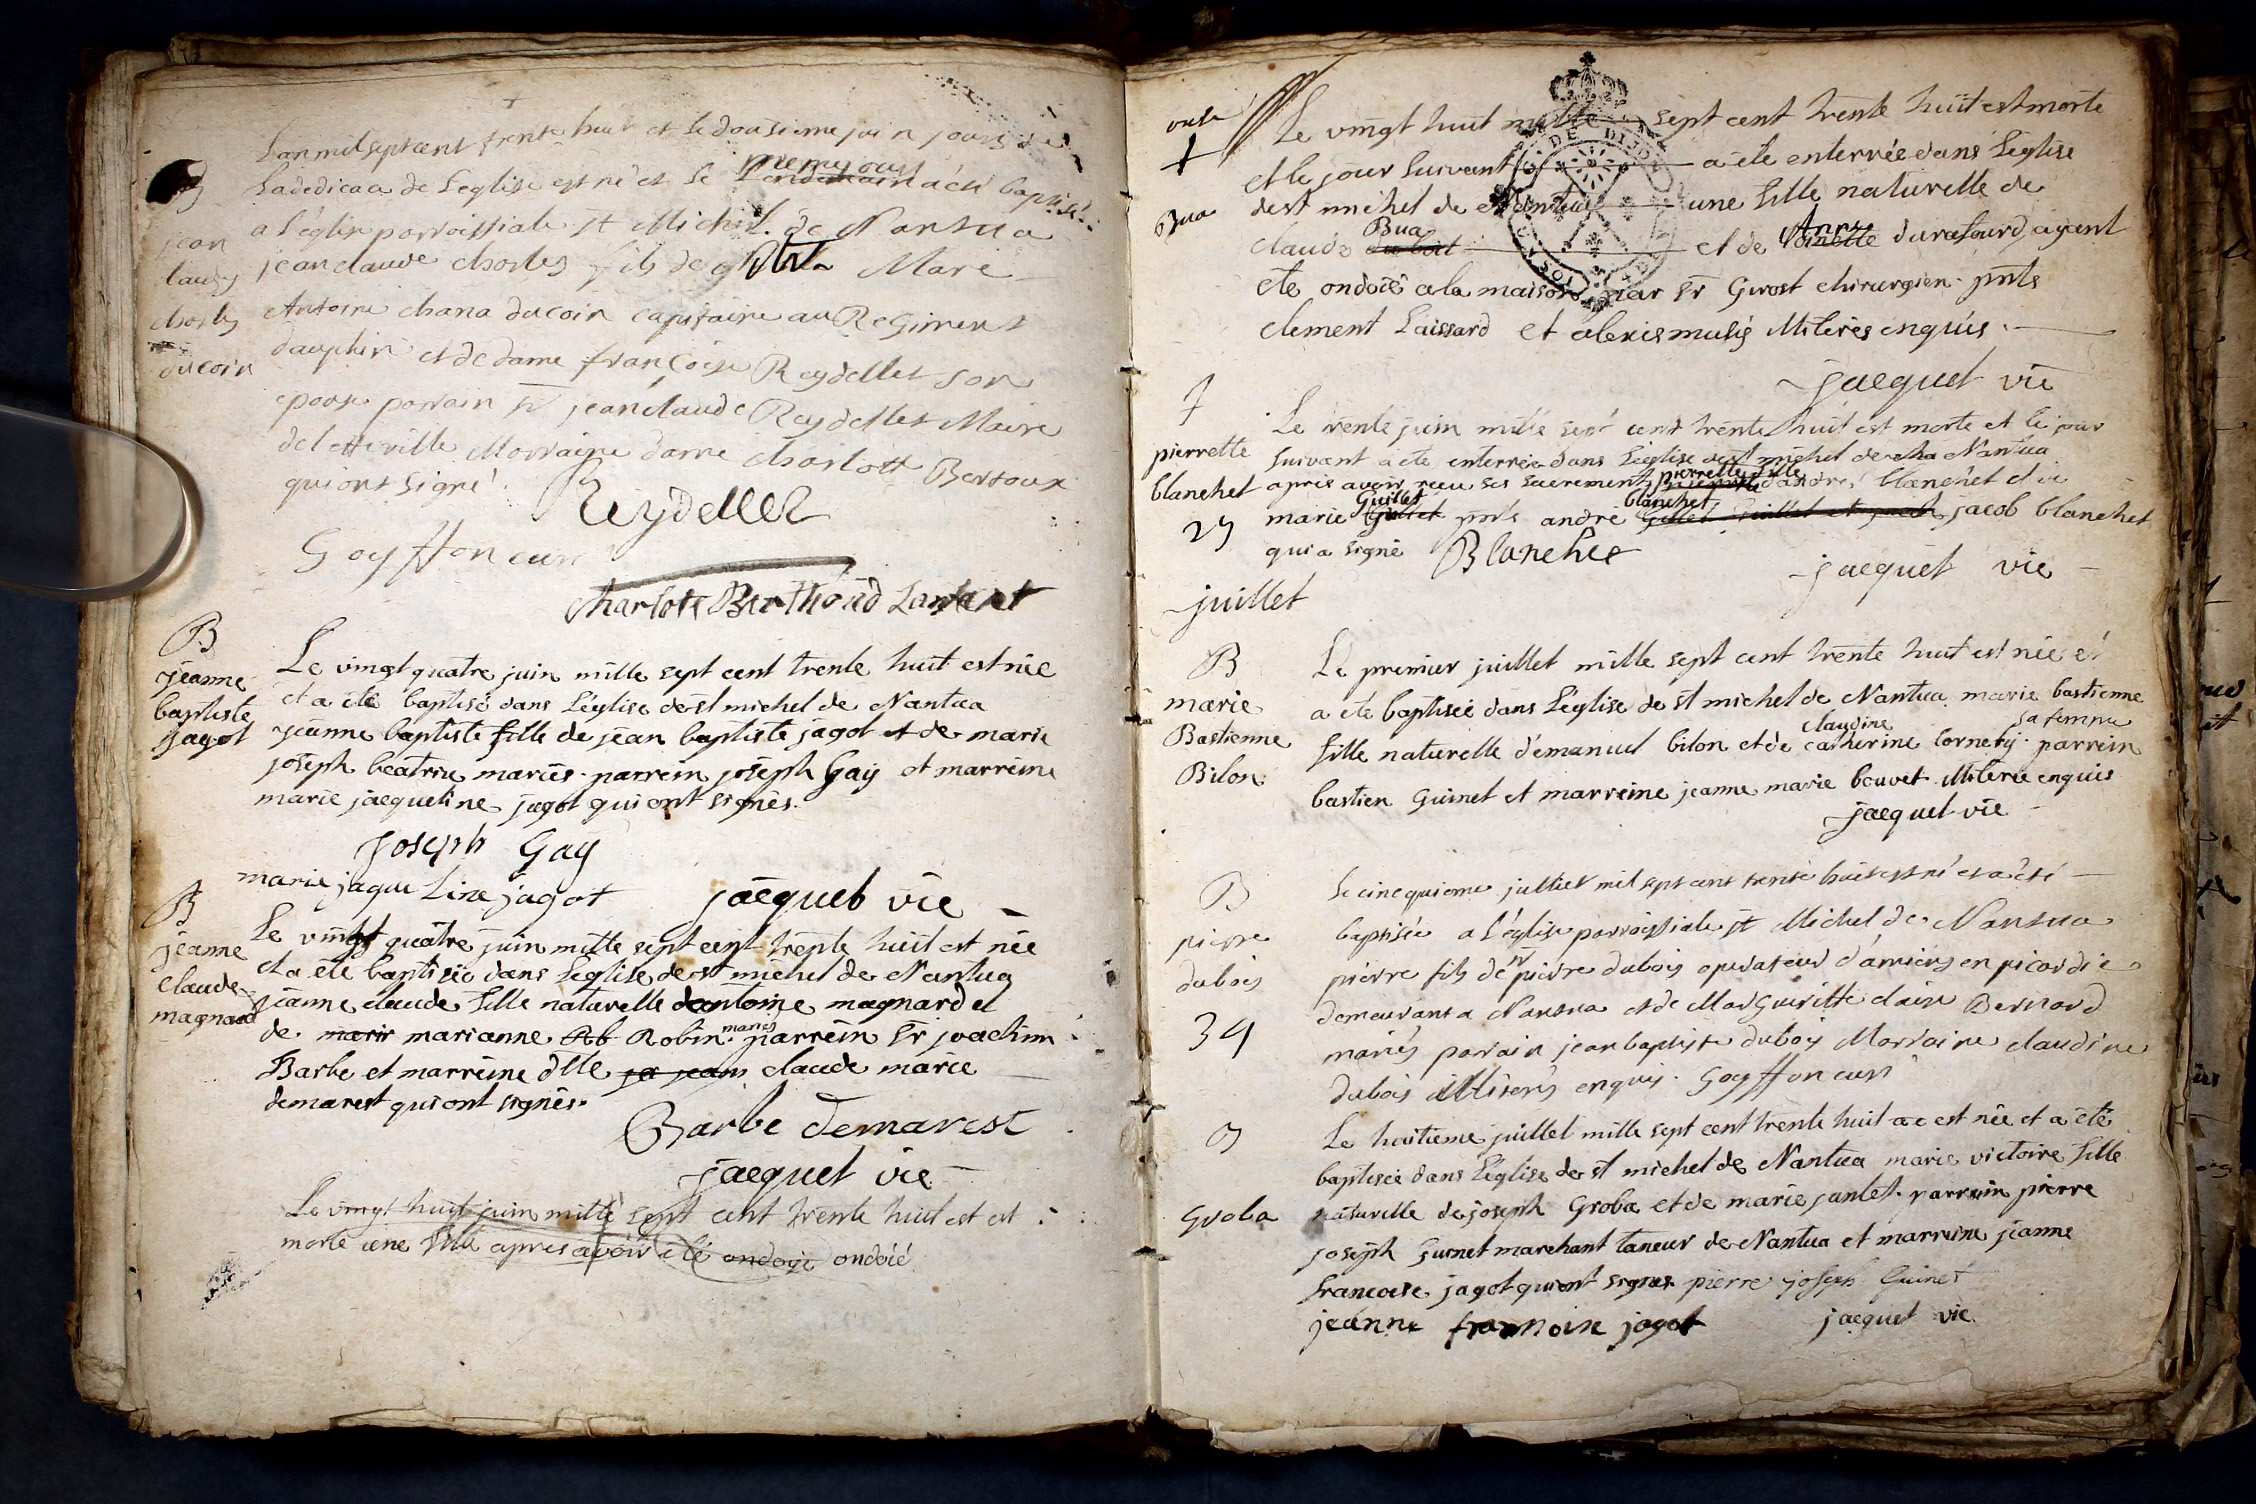 L'an mil sept cent trente huit et le dousieme juin jours de
la dedicace de l'eglise est né et le meme jour a été baptisé
a l'église parroissiale st Michel de Nantua
jean claude charles fils de Mare
Antoine chana ducoin capitaine au Regiment
dauphin et de dame françoise Reydellet son
epouse parrain sr jean claude Reydellet Maire
de lette ville Marraine dame charlotte Bertoux
qui ont signé.
jean
laude
charles
ducoin
Reydellet
Goyffon curé
charlote Berthoud
B
jeanne
baptiste
jagot
Le vingt quatre juin mille sept cent trente huit est née
et a été baptisé dans L'église de st michel de Nantua
jeanne baptiste fille de jean baptiste jagot et de marie
joseph beatrix mariés. parrein joseph Gay et marreine
marie jacqueline jagot qui ont signés.
Joseph Gay
marie jaque Line jagot jacquet vic
B
jeanne
claude
magnard
Le vingt quatre juin mille sept cent trente huit est née
et a été baptisée dans L'eglise de st michel de Nantua
jeanne claude fille naturelle dantoine magnard et
de marie marianne Rob Robin mariés parrein sr joachim
Barbe et marreine dlle claude marie
demarest qui ont signés.
Barbe demarest
jacquet vic
Le vingt huit juin mille sept cent trente huit est et
morte une fille apres avoir été ondoye ondoié
+
Bua
Le vingt huit sept cent trente huit est morte
et le jour suivant a été enterrée dans L'église
de st michel de Nantua une fille naturelle de
claude Bua et de Anne durafourd, ayant
été ondoié a la maison par sr Girost chirurgien. pnts
clement Laissard et alexis musy illiterés enquis.
jacquet vic
†
pierrette
blanchet
Le trente juin mille sept cent trente huit est morte et le jour
suivant a été enterrée dans L'église de st michel de Nantua
apres avoir receu ses sacrements pierrette fille d'andré blanchet et de
marie Guillet pnts andré blanchet jacob blanchet
qui a signé Blanchet
jacquet vic
juillet
B
marie
Bastienne
Bilon
Le premier juillet mille sept cent trente huit est née et
a été baptisée dans L'église de st michel de Nantua marie bastienne
fille naturelle d'emanuel bilon et de claudine catherine cornety sa femme parrein
bastien Guinet et marreine jeanne marie bouvet illiteré enquis
jacquet vic
B
pierre
dubois
34
Le cinequieme julliet mil sept cent trente huit est né et a été
baptisée a l'église parroissiale st Michel de Nantua
pierre fils de sr pierre dubois operateur d'amiens en picardie
demeurant a Nantua et de Margueritte claire Bernard
mariés parrain jean baptiste dubois Marraine claudine
dubois illiterés enquis. Goyffon curé
B
Groba
Le huitieme juillet mille sept cent trente huit a e est née et a été
baptisée dans L'église de st michel de Nantua marie victoire fille
naturelle de joseph Groba et de marie jantet. parrein pierre
joseph Guinet marchant taneur de Nantua et marreine jeanne
francoise jagot qui ont signes pierre joseph Guinet
jeanne franoise jagot jacquet vic